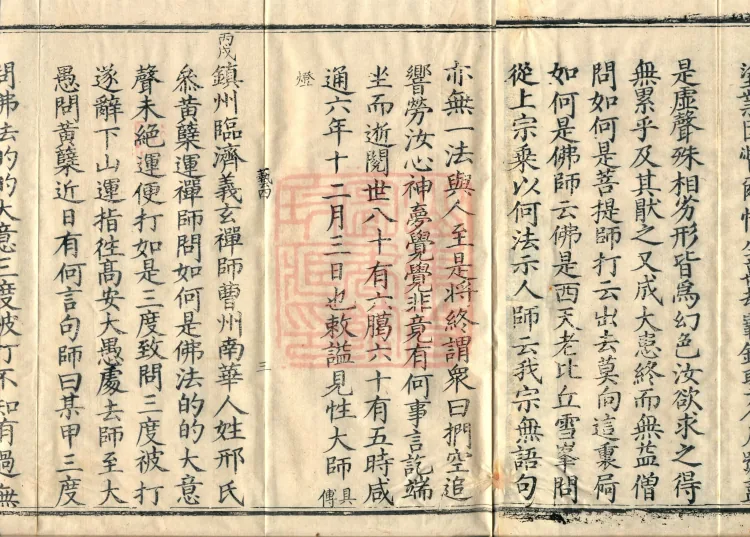 是虛聲殊相劣形皆為幻色汝欲求之得
無累乎及其猒之又成大患終而無益僧
問如何是菩提師打云出去莫向這裏屙
如何是佛師云佛是西天老比丘雪峯問
從上宗乘以何法示人師云我宗無語句
亦無一法與人至是將終謂衆曰捫空追
響勞汝心神夢覺覺非竟有何事言訖端
坐而逝閱世八十有六臈六十有五時咸
通六年十二月三日也敕謚見性大師具傳
燈
藝四
三
丙戌鎮州臨濟義玄禪師曹州南華人姓邢氏
叅黃蘗運禪師問如何是佛法的的大意
聲未絕運便打如是三度致問三度被打
遂辭下山運指徃髙安大愚處去師至大
愚問黃蘗近日有何言句師曰某甲三度
問佛法的的大意三度被打不知有過無